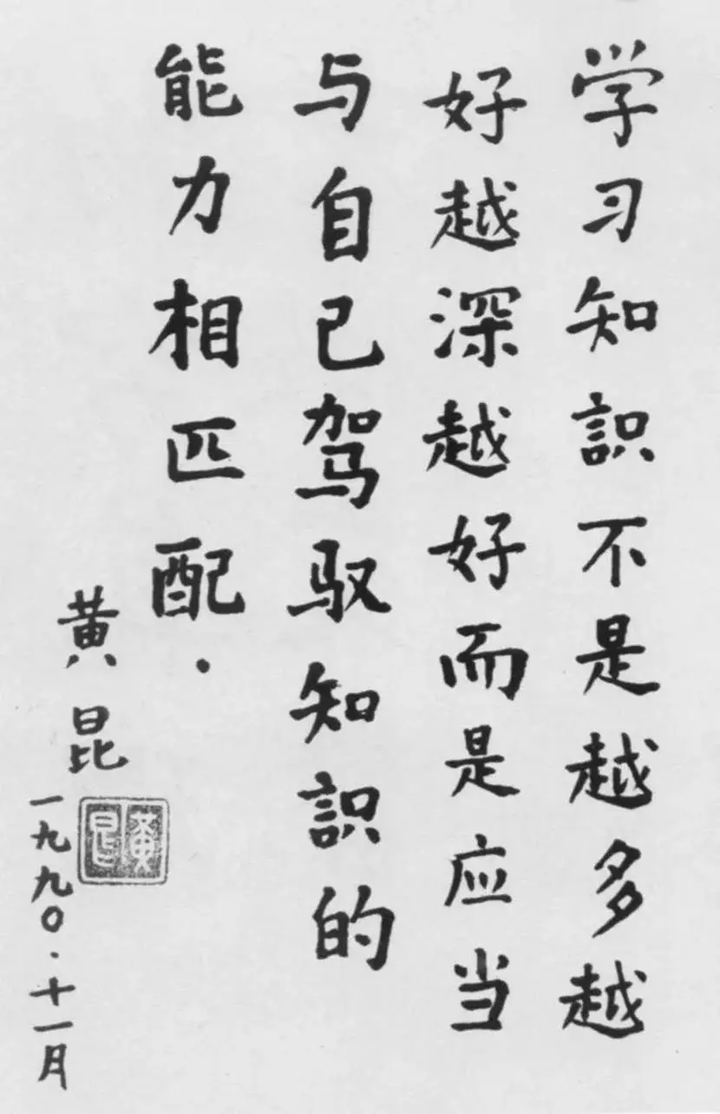 学习知識不是越多越
好越深越好而是应当
与自己驾驭知識的
能力相匹配.
黄昆
黄昆
一九九〇.十一月